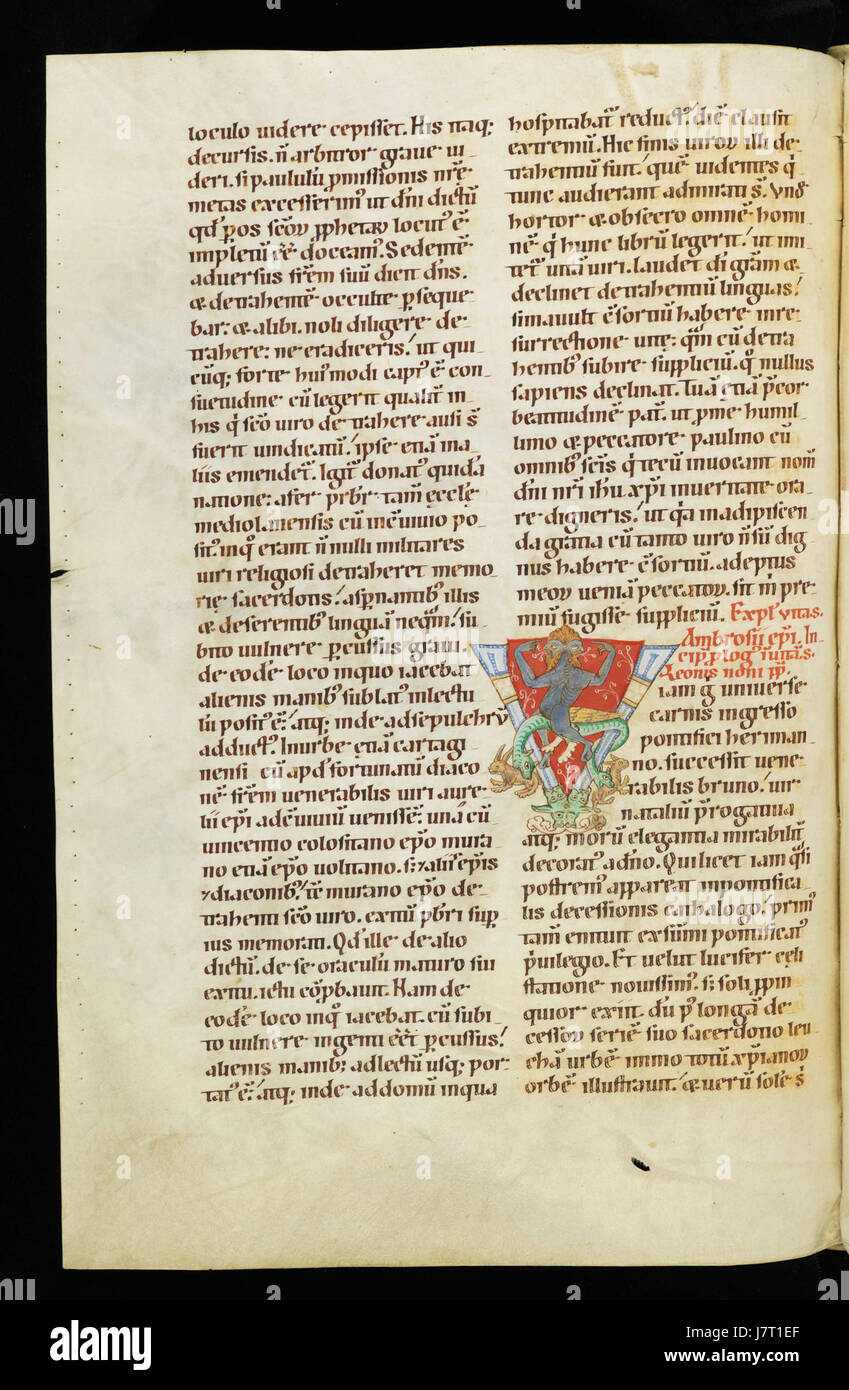 loculo uidere cepisset. His itaq;
decursis. n̄ arbitror graue ui
deri. si paululū ꝓmissionis nr̄e
metas excesserimꝰ ut dn̄i dictū
qd̄ ꝑ os sc̄oꝝ ꝓphetaꝝ locutꝰ ē
impletū eē doceamꝰ. Sedentē
aduersus fr̄em suū dicit dn̄s.
& detrahentē occulte ꝑseque
bar: & alibi. noli diligere de
trahere: ne eradiceris! ut qui
cūq; forte huiꝰmodi captꝰ ē con
suetudine cū legerit qualit̄ in
his q̇ sc̄o uiro detrahere ausi s̄
fuerit uindicatū! ipse etiā in a
liis emendet̄. Igit̄ donatꝰ quidā
natione: afer prb̄r tam̄ ęcclę
mediolanensis cū in cōuiuio po
sitꝰ inq̊ erant n̄ nulli militares
uiri religiosi detraheret memo
rię sacerdotis! aspnantibꝰ illis
& deserentibꝰ linguā neq̄m! su
bito uulnere ꝑcussus graui.
de eodē loco in quo iacebat
alienis manibꝰ sublatꝰ in lectu
lū positꝰ ē: atq; inde ad sepulchrū
adductꝰ. In urbe etiā cartagi
nensi cū apd̄ fortunatū diaco
nē fr̄em uenerabilis uiri aure
lii ep̄i ad cōuiuiū uenissē: unā cū
uincentio colositano ep̄o mura
no etiā ep̄o uolitano. s; & aliis ep̄is
& diaconibꝰ: tc̄ murano ep̄o de
trahenti sc̄o uiro. exitū pb̄ri sup̄
ius memorati. Qd̄ ille de alio
dictū. de se oraculū maturo sui
exitu. ictu cōꝓbauit. Nam de
eodē loco inq̊ iacebat. cū subi
to uulnere ingenti eēt ꝑcussus!
alienis manib; ad lectū usq; por
tatꝰ ē: atq; inde ad domū in qua
hospitabat̄ reductꝰ. diē clausit
extremū. Hic finis uiroꝝ illi de
trahentiū fuit! quē uidentes q̇
tunc audierant admirati s̄. Vnde
hortor & obsecro omnē homi
nē q̇ hunc librū legerit! ut imi
tet̄ uitā uiri. laudet di gr̄am &
declinet detrahentiū linguas!
si mauult cōsortiū habere in re
surrectione uitę: q̄m cū detra
hentibꝰ subire suppliciū. q̊ nullus
sapiens declinat. Tuā etiā p̄cor
beatitudinē pat̄. ut ꝓ me humil
limo & peccatore paulino cū
omnibꝰ sc̄is q̇ tecū inuocant nom̄
dn̄i nr̄i ih̄u xp̄i in ueritate ora
re digneris! ut q̇a in adipiscen
da gratia cū tanto uiro n̄ sū dig
nus habere cōsortiū. adeptus
meoꝝ ueniā peccatoꝝ. sit m̄ pre
miū fugisse suppliciū. Expl̄ uitas.
Ambrosii ep̄i. In
cip̄ ꝓlog̊ ī uitā s.
Leonis noni p̄p.
iam g̊ uniuerse
carnis ingresso
pontifici herman
no. successit uene
rabilis bruno! uir
nataliū p̄rogatiua
atq; morū elegantia mirabilit̄
decoratꝰ a dn̄o. Qui licet iam q̄si
postremꝰ appareat in pontifica
lis decessionis cathalogo! primꝰ
tam̄ enituit ex sūmi pontificatꝰ
p̄uilegio. Et uelut lucifer cęli
statione nouissimꝰ. s; soli ꝓpin
quior exiit. dū p̄ longā de
cessoꝝ seriē suo sacerdotio leu
chā urbē immo totū xp̄ianoꝝ
orbē illustrauit! & uerū solē s̄
alamy
Image ID: J7T1EF
www.alamy.com